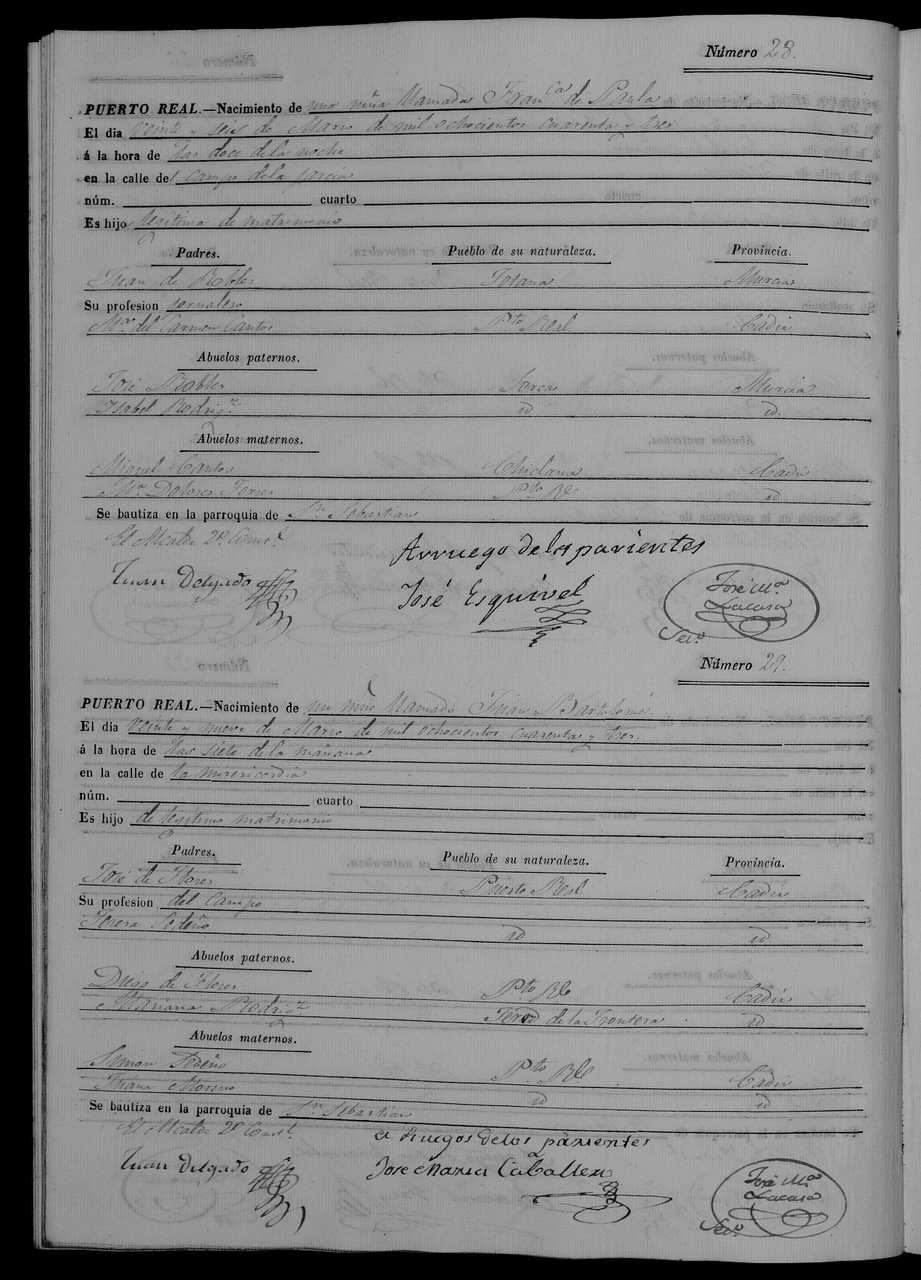 Número 28.
PUERTO REAL.—Nacimiento de una niña llamada Fran.ca de Paula
El dia veinte y seis de Marzo de mil ochocientos cuarenta y tres
á la hora de las doce de la noche
en la calle del campo de la
núm. cuarto
Es hijo legitima de matrimonio
Padres. Pueblo de su naturaleza. Provincia.
Juan de Robles Totana Murcia
Su profesion jornalero
M.a del Carmen Cantos P.to Real Cadiz
Abuelos paternos.
José Robles Lorca Murcia
Isabel Rodrig.z id id.
Abuelos maternos.
Miguel Cantos Chiclana Cadiz
M.a Dolores Torres P.to Rl id
Se bautiza en la parroquia de Sn Sebastian
El Alcalde 2º Const.l
Arruego de los parientes
Juan Delgado José Esquivel José M.a Lacasa
Sec.o
Número 29.
PUERTO REAL.—Nacimiento de un niño llamado Juan Bartolomé
El dia veinte y nueve de Marzo de mil ochocientos cuarenta y tres
á la hora de las siete de la mañana
en la calle de la misericordia
núm. cuarto
Es hijo de legitimo matrimonio
Padres. Pueblo de su naturaleza. Provincia.
José de Flores Puerto Real Cadiz
Su profesion del Campo
Teresa Sedeño id id
Abuelos paternos.
Diego de Flores P.to Rl Cadiz
Mariana Rodrig.z Jerez de la Frontera id
Abuelos maternos.
Simon Sedeño P.to Rl Cadiz
Juana Moreno id id
Se bautiza en la parroquia de Sn Sebastian
El Alcalde 2º Const.l
a Ruegos de los parientes
Juan Delgado Jose Maria Caballero José M.a Lacasa
Sec.o